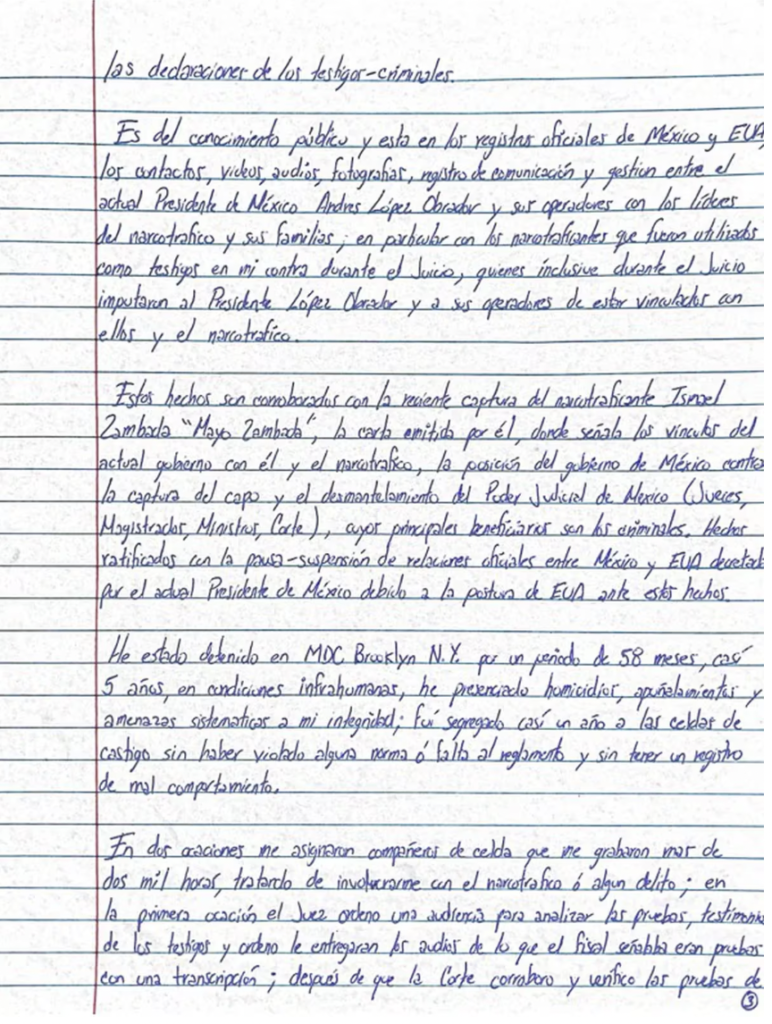 las declaraciones de los testigos-criminales.
Es del conocimiento público y esta en los registros oficiales de México y EUA,
los contactos, videos, audios, fotografias, registro de comunicación y gestion entre el
actual Presidente de México Andres López Obrador y sus operadores con los líderes
del narcotrafico y sus familias; en particular con los narcotraficantes que fueron utilizados
como testigos en mi contra durante el Juicio, quienes inclusive durante el Juicio
imputaron al Presidente López Obrador y a sus operadores de estar vinculados con
ellos y el narcotrafico.
Estos hechos son corroborados con la reciente captura del narcotraficante Ismael
Zambada "Mayo Zambada", la carta emitida por él, donde señala los vinculos del
actual gobierno con él y el narcotrafico, la posición del gobierno de México contra
la captura del capo y el desmantelamiento del Poder Judicial de Mexico (Jueces,
Magistrados, Ministros, Corte), cuyos principales beneficiarios son los criminales. Hechos
ratificados con la pausa-suspensión de relaciones oficiales entre México y EUA decretada
por el actual Presidente de México debido a la postura de EUA ante estos hechos.
He estado detenido en MDC Brooklyn N.Y. por un periodo de 58 meses, casí
5 años, en condiciones infrahumanas, he presenciado homicidios, apuñalamientos y
amenazas sistematicas a mi integridad; fuí segregado casí un año a las celdas de
castigo sin haber violado alguna norma ó falta al reglamento y sin tener un registro
de mal comportamiento.
En dos ocaciones me asignaron compañeros de celda que me grabaron mas de
dos mil horas, tratando de involucrarme con el narcotrafico ó algun delito; en
la primera ocación el Juez ordeno una audiencia para analizar las pruebas, testimonios
de los testigos y ordeno le entregaran los audios de lo que el fiscal señalaba eran pruebas
con una transcripción; después de que la Corte corroboro y verifico las pruebas de
3